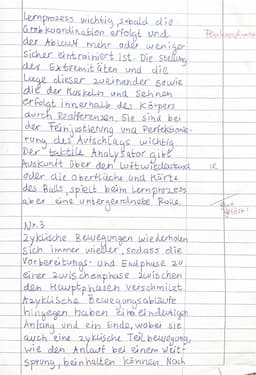 Lernprozess wichtig, sobald die
Grobkoordination erfolgt und
der Ablauf mehr oder weniger
sicher eintrainiert ist. Die Stellung
der Extremitäten und die
Lage dieser zueinander sowie
die der Muskeln und Sehnen
erfolgt innerhalb des Körpers
durch Reafferenzen. Sie sind bei
der Feinjustierung und Perfektionie-
rung des Aufschlags wichtig.
Der taktile Analysator gibt
Auskunft über den Luftwiderstand
oder die Oberfläche und Härte
des Balls, spielt beim Lernprozess
aber eine untergeordnete Rolle.
Nr. 3
Zyklische Bewegungen wiederholen
sich immer wieder, sodass die
Vorbereitungs- und Endphase zu
einer Zwischenphase zwischen
den Hauptphasen verschmilzt.
Azyklische Bewegungsabläufe
hingegen haben eine eindeutigen
Anfang und ein Ende, wobei sie
auch eine zyklische Teilbewegung,
wie den Anlauf bei einem Weit-
sprung, beinhalten können. Nach